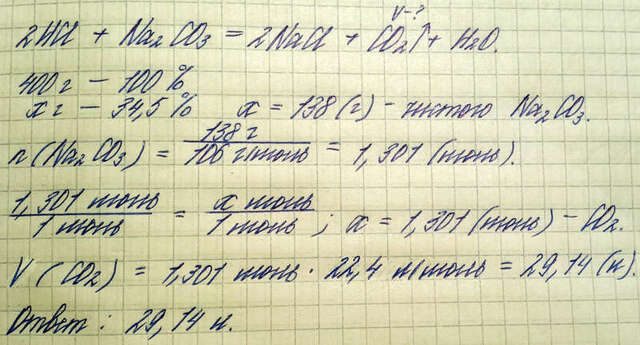 V-?
2HCl + Na₂CO₃ = 2NaCl + CO₂↑ + H₂O.
400 г – 100 %
x г – 34,5 % x = 138 (г) – чистого Na₂CO₃.
n (Na₂CO₃) = 138 г / 106 г/моль = 1,301 (моль).
1,301 моль / 1 моль = x моль / 1 моль ; x = 1,301 (моль) – CO₂.
V (CO₂) = 1,301 моль · 22,4 л/моль = 29,14 (л).
Ответ : 29,14 л.